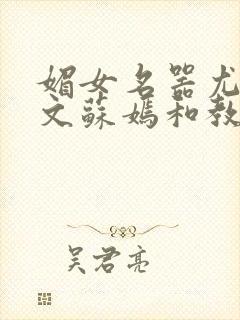 媚女名器尤
文蘇媽和教
吴君亮